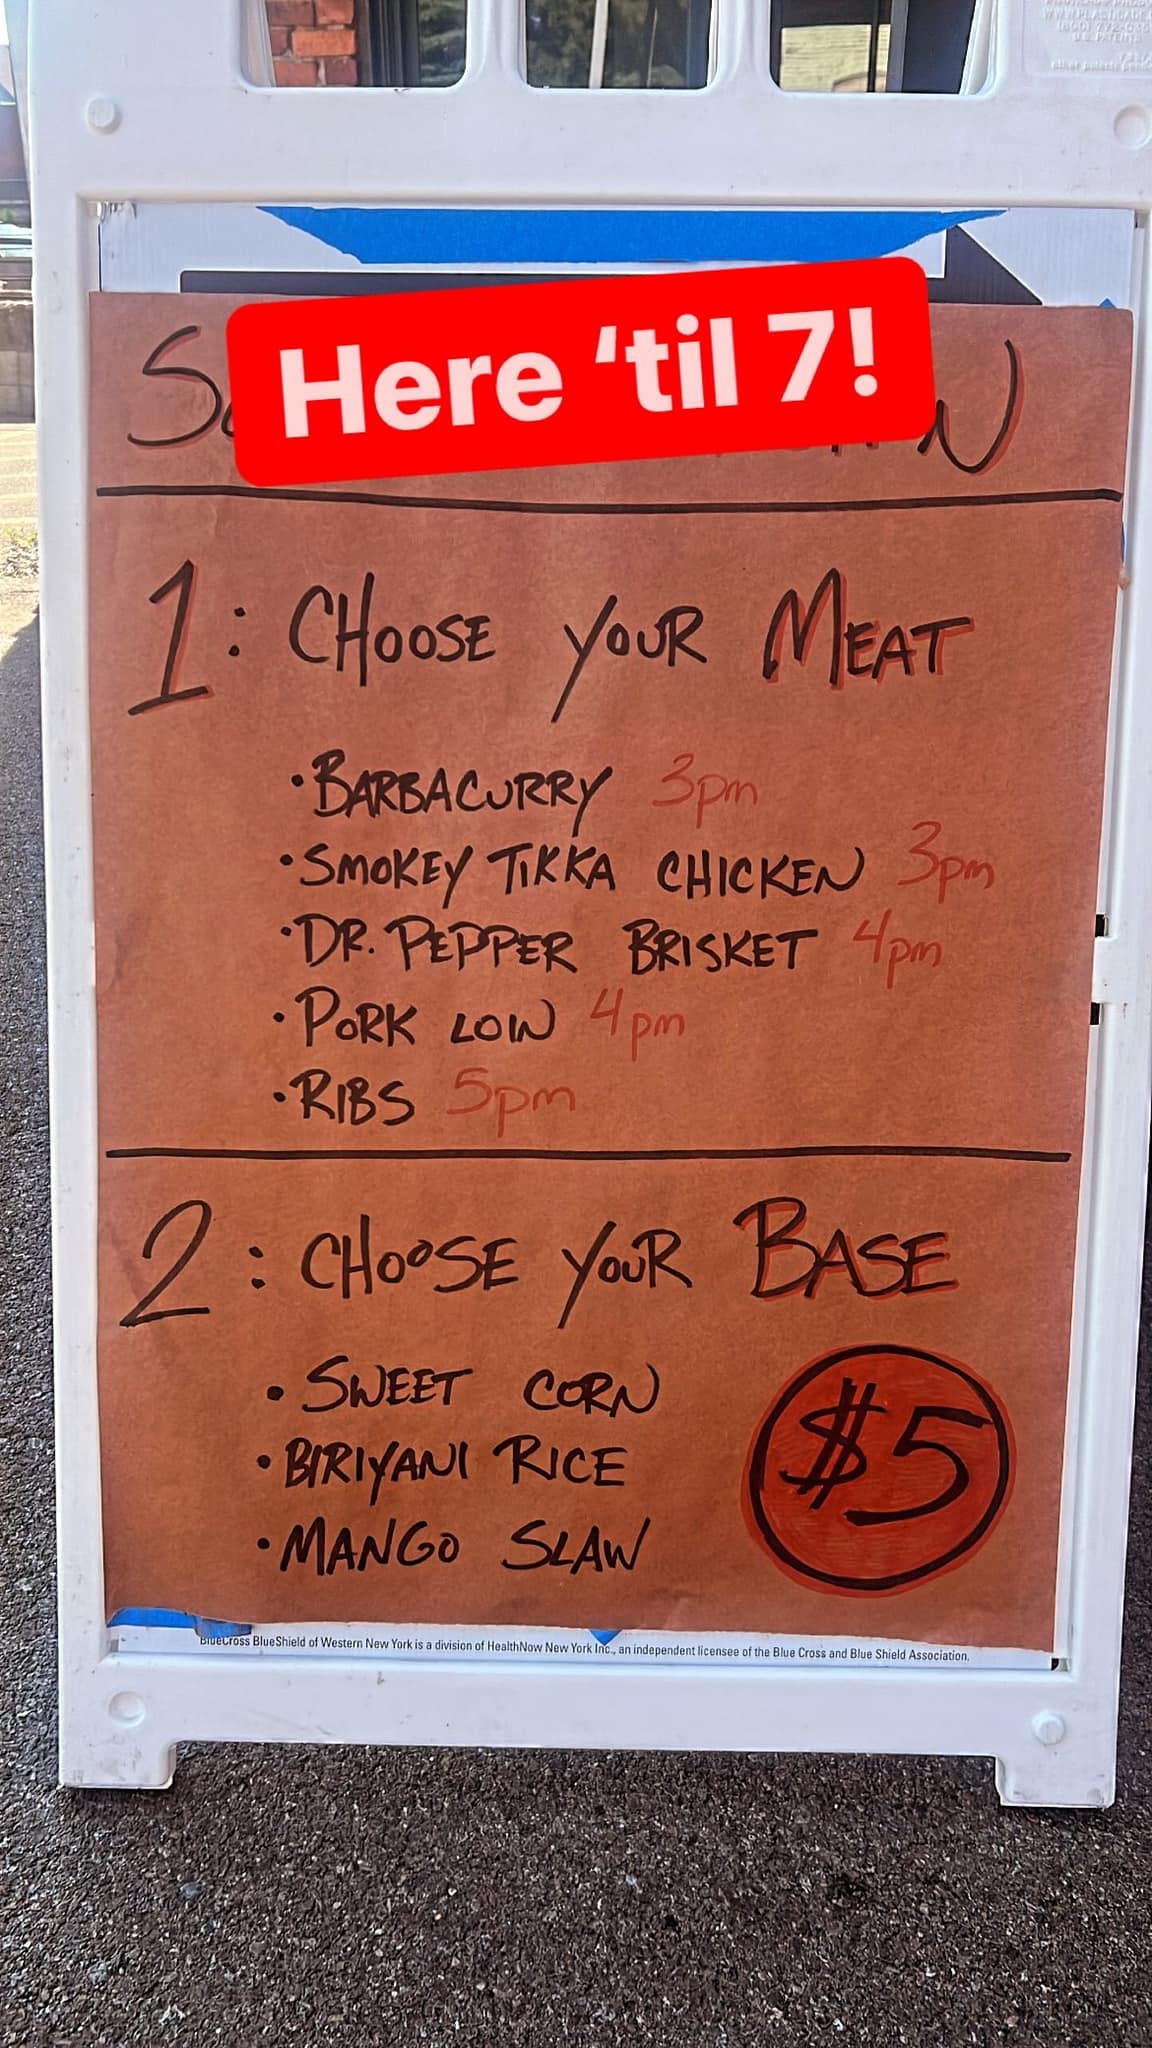 Here ‘til 7!
1: CHOOSE YOUR MEAT
• BARBACURRY 3pm
• SMOKEY TIKKA CHICKEN 3pm
• DR. PEPPER BRISKET 4pm
• PORK LOIN 4pm
• RIBS 5pm
2: CHOOSE YOUR BASE
• SWEET CORN
• BIRIYANI RICE
• MANGO SLAW
$5
BlueCross BlueShield of Western New York is a division of HealthNow New York Inc., an independent licensee of the Blue Cross and Blue Shield Association.